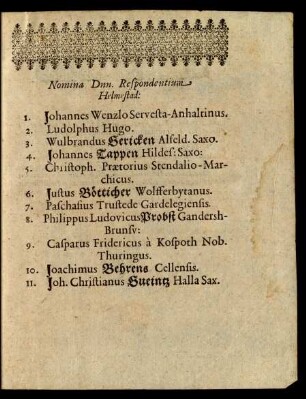 Nomina Dnn. Respondentium
Helmestad:
1. Johannes Wenzlo Servesta-Anhaltinus.
2. Ludolphus Hugo.
3. Wulbrandus Gericken Alfeld. Saxo.
4. Johannes Tappen Hildes: Saxo:
5. Christoph. Prætorius Stendalio-Mar-
chicus.
6. Justus Bötticher Wolfferbytanus.
7. Paschasius Trustede Gardelegiensis.
8. Philippus Ludovicus Probst Gandersh-
Brunsv:
9. Casparus Fridericus à Kospoth Nob.
Thuringus.
10. Joachimus Behrens Cellensis.
11. Joh. Christianus Gueintz Halla Sax.